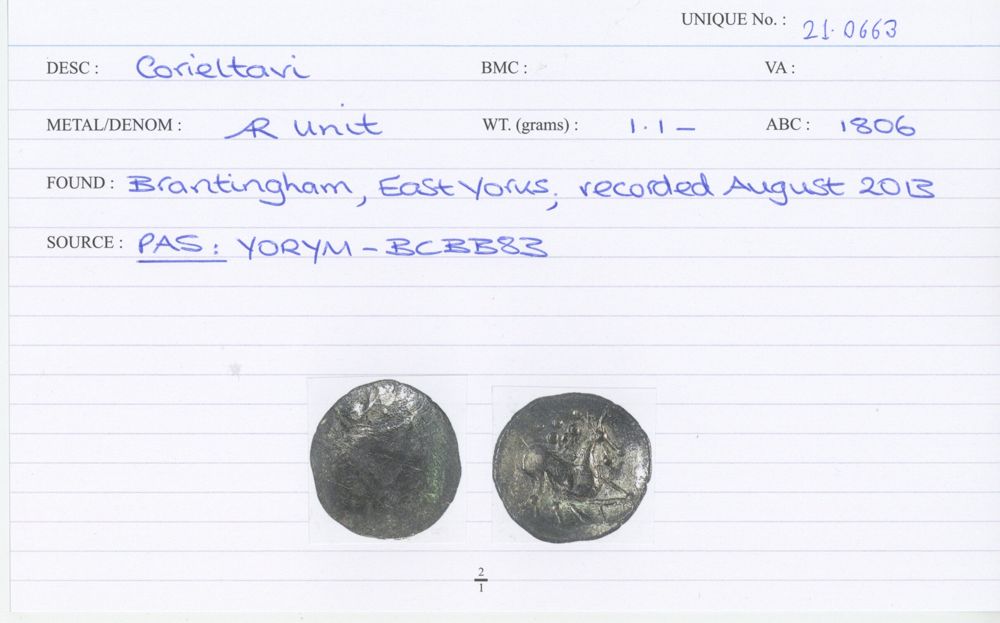 UNIQUE No. : 21.0663
DESC : Corieltavi BMC : VA :
METAL/DENOM : AR unit WT. (grams) : 1.1 – ABC : 1806
FOUND : Brantingham, East Yorks; recorded August 2013
SOURCE : PAS: YORYM – BCBB83
2
1